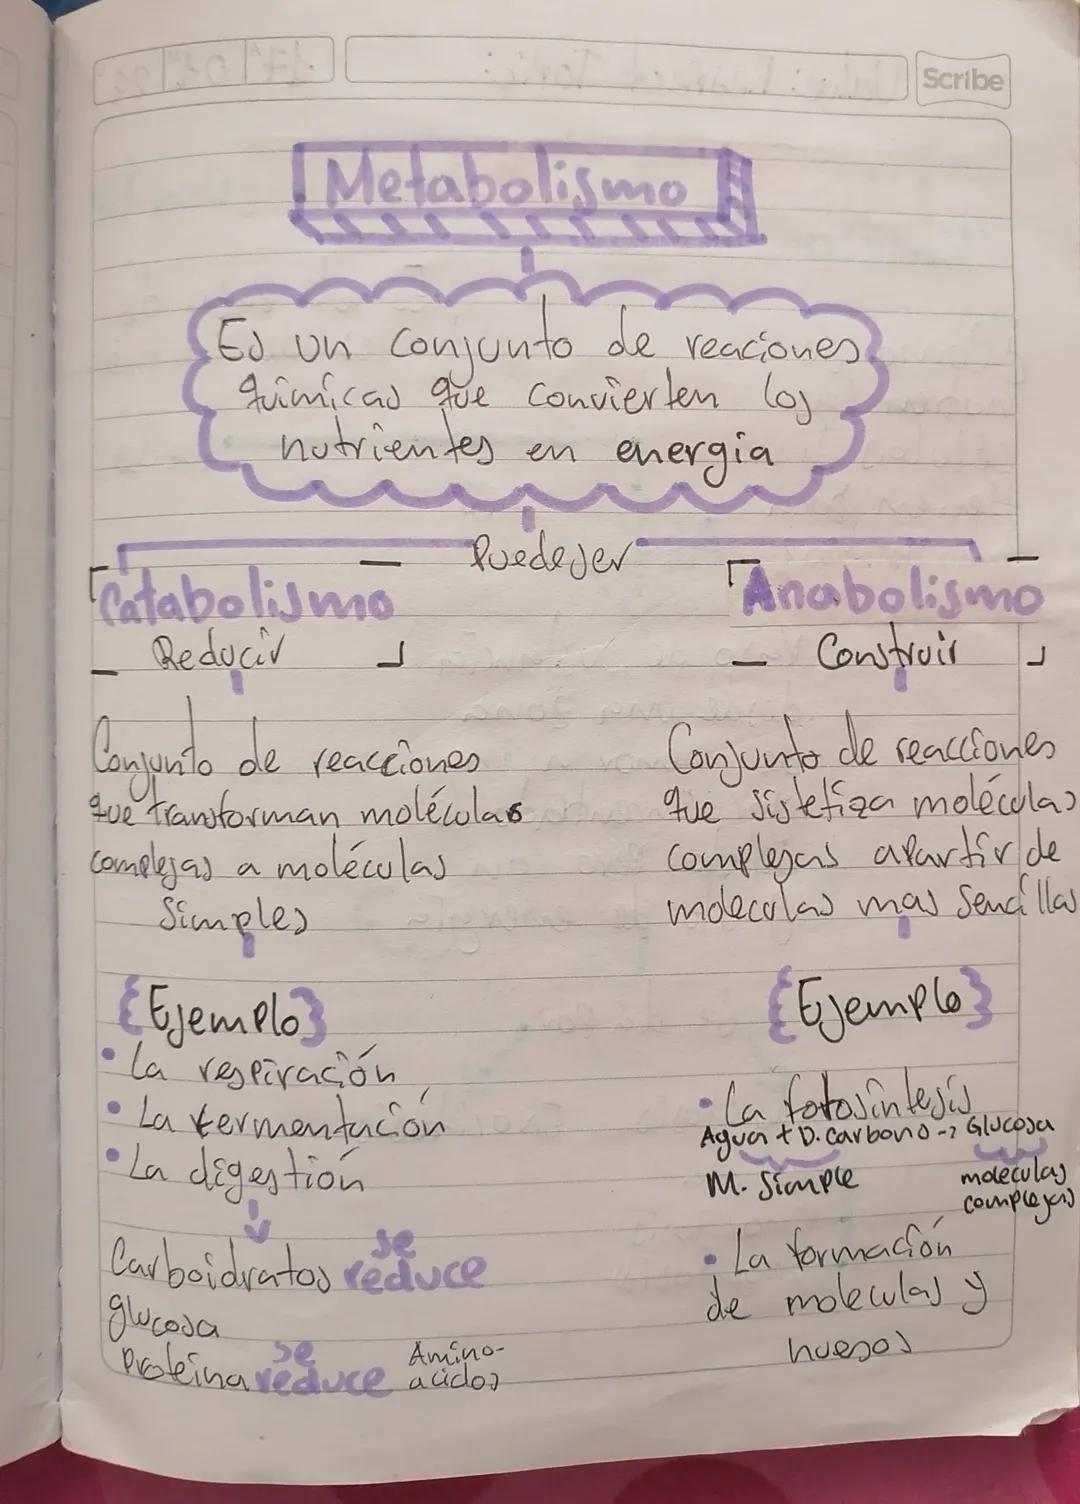 Scribe
Metabolismo
Es un conjunto de reaciones
quimicas que convierten los
nutrientes en energia
Puede ser
Catabolismo
Reducir
Conjunto de reacciones
que transforman moléculas
complejas a moléculas
simples
{Ejemplo}
• La respiración
• La fermentación
• La digestión
Carboidratos se reduce
glucosa
Proteina se reduce Amino-
acidos
Anabolismo
Construir
Conjunto de reacciones
que sistetiza moléculas
complejas apartir de
moleculas mas sencillas
{Ejemplo}
• La fotosíntesis
Agua + D. Carbono -> Glucosa
M. Simple
moleculas
complejas
• La formación
de moleculas y
huesos